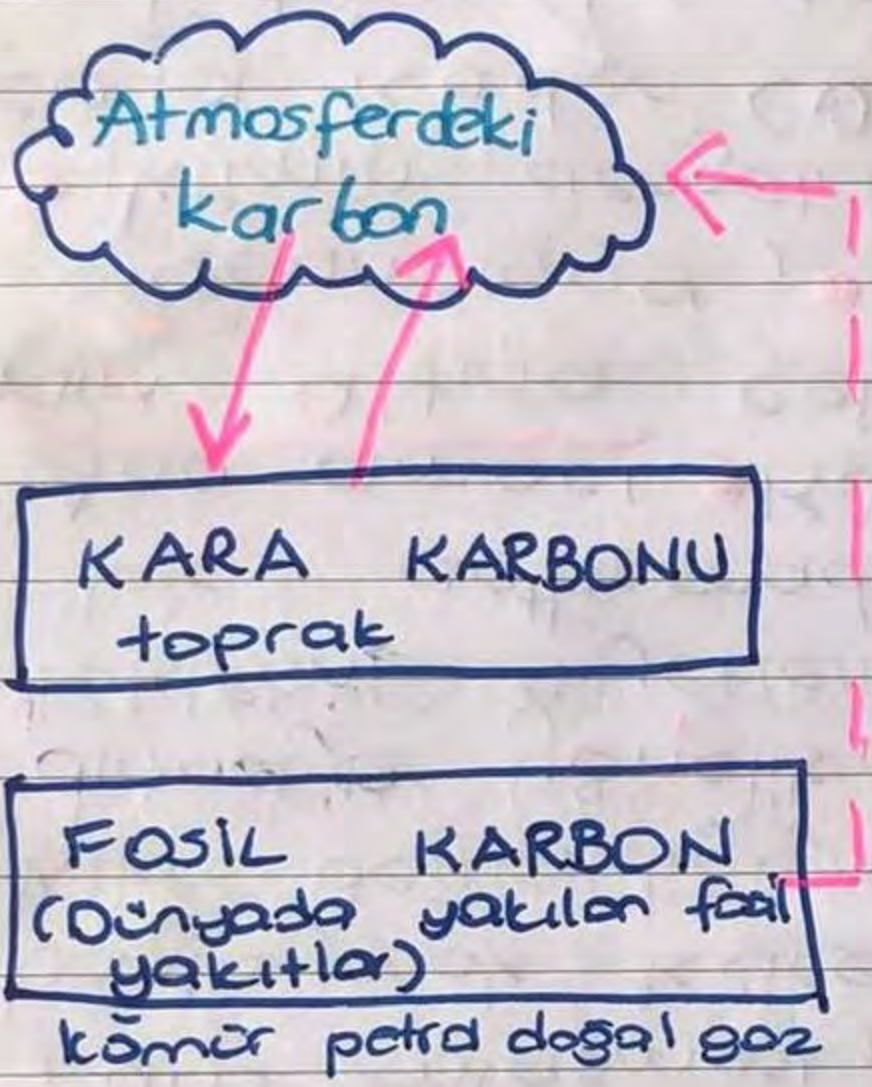 Atmosferdeki
karbon
KARA KARBONU
toprak
FOSİL KARBON
(Dünyada yakılan fosil
yakıtlar)
kömür petrol doğal gaz